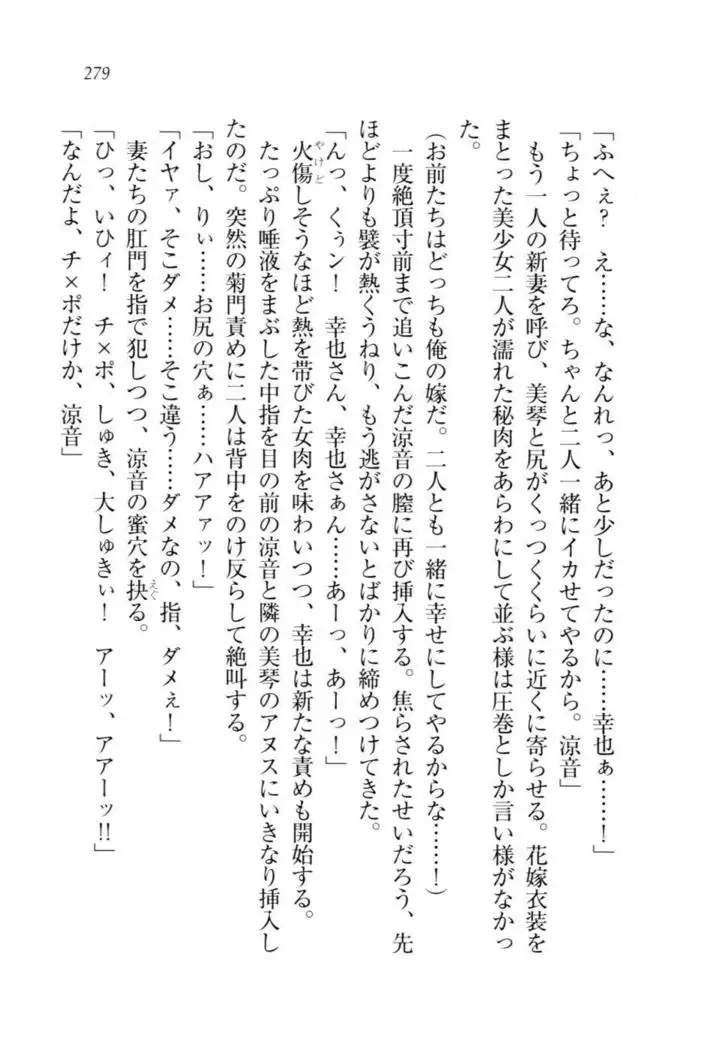 279
「ふへぇ？　え……な、なんれっ、あと少しだったのに……幸也ぁ……！」
「ちょっと待ってろ。ちゃんと二人一緒にイカせてやるから。涼音」
もう一人の新妻を呼び、美琴と尻がくっつくくらいに近くに寄らせる。花嫁衣装を
まとった美少女二人が濡れた秘肉をあらわにして並ぶ様は圧巻としか言い様がなかっ
た。
（お前たちはどっちも俺の嫁だ。二人とも一緒に幸せにしてやるからな……！）
一度絶頂寸前まで追いこんだ涼音の膣に再び挿入する。焦らされたせいだろう、先
ほどよりも襞が熱くうねり、もう逃がさないとばかりに締めつけてきた。
「んっ、くぅン！　幸也さん、幸也さぁん……あーっ、あーっ！」
火傷しそうなほど熱を帯びた女肉を味わいつつ、幸也は新たな責めも開始する。
たっぷり唾液をまぶした中指を目の前の涼音と隣の美琴のアヌスにいきなり挿入し
たのだ。突然の菊門責めに二人は背中をのけ反らして絶叫する。
「おし、りぃ……お尻の穴ぁ……ハアアァッ！」
「イヤァ、そこダメ……そこ違う……ダメなの、指、ダメぇ！」
妻たちの肛門を指で犯しつつ、涼音の蜜穴を抉る。
「ひっ、いひィ！　チ×ポ、しゅき、大しゅきぃ！　アーッ、アアーッ!!」
「なんだよ、チ×ポだけか、涼音」